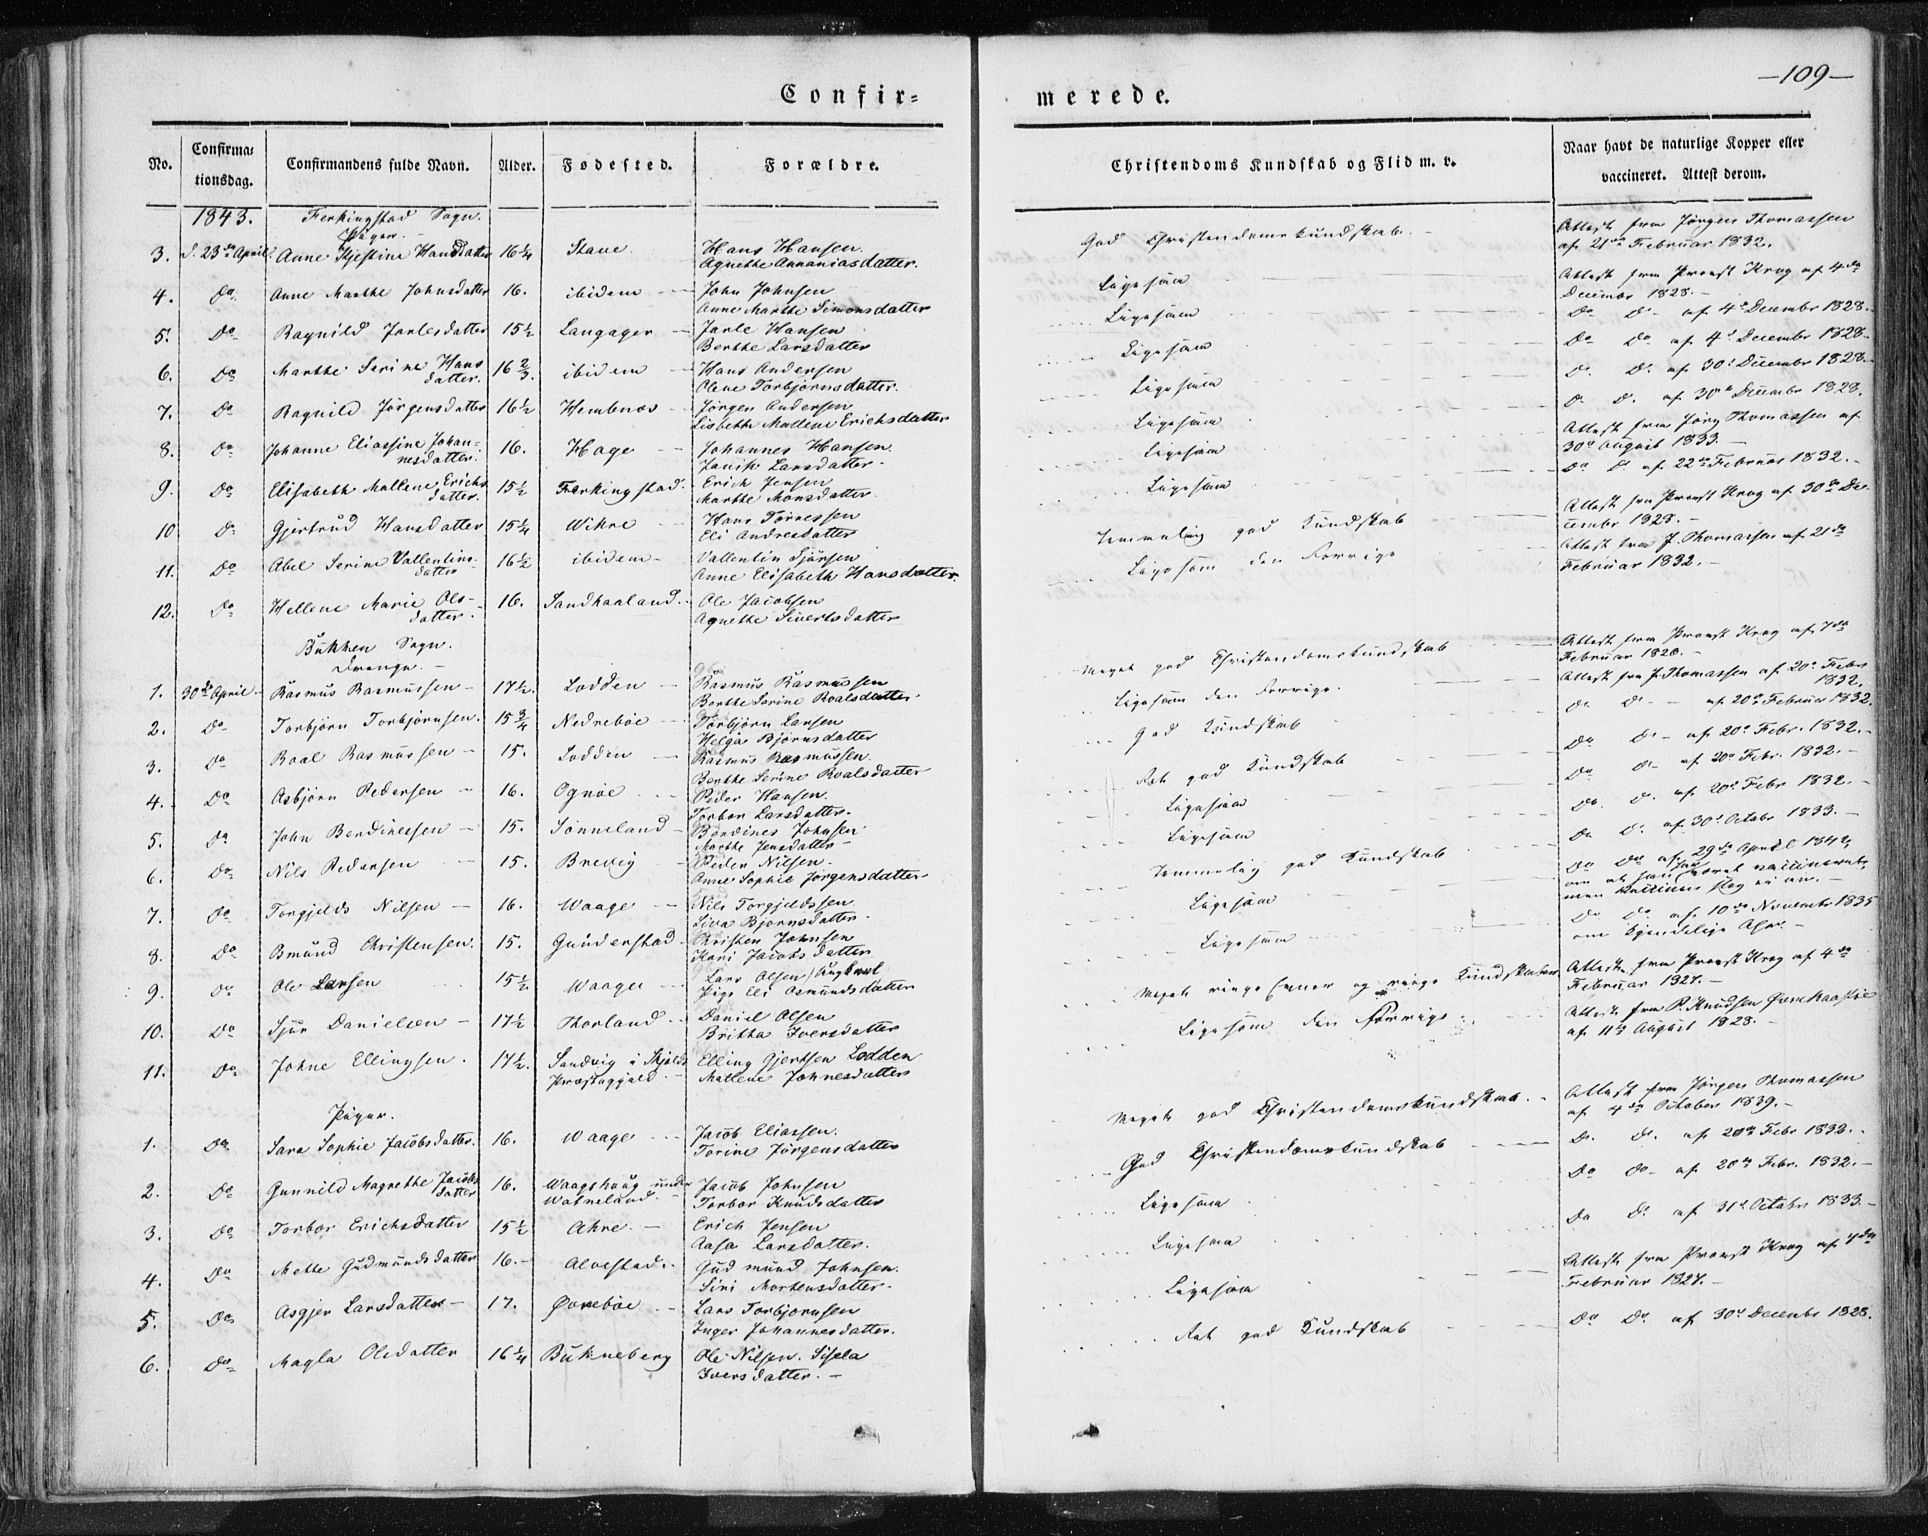 —109—
Confir=
merede.
No.
Confirma=
tionsdag.
Confirmandens fulde Navn.
Alder.
Fødested.
Forældre.
Christendoms Kundskab og Flid m. v.
Naar havt de naturlige Kopper eller
vaccineret. Attest derom.
1843. Ferkingstad Sogn.
Piger.
3. d. 23de April Anne Kjestine Hansdatter 16 1/4 Stave Hans Hansen. God Christendomskundskab. Attest fra Jørgen Thomassen
Agnethe Annaniasdatter. af 21de Februar 1832.
4. Do Anne Marthe Johnsdatter 16. ibidem John Johnsen Ligesaa Attest fra Provst Krog af 4de
Anne Marthe Simonsdatter December 1828.
5. Do Ragnild Jarlesdatter 15 1/2 Langager Jarle Hansen Ligesaa Do Do af 4de Decembr 1828.
Berthe Larsdatter
6. Do Marthe Serine Hans 16 2/3. ibidem Hans Andersen Ligesaa Do Do af 4de December 1828
datter. Olene Torbjørnsdatter.
7. Do Ragnild Jørgensdatter 16 1/2 Hemnæs Jørgen Andersen Ligesaa Do Do af 30de December 1828.
Lisbethe Mallene Erichsdatter
8. Do Johanne Eliassine Johan= 16. Hage Johannes Hansen Ligesaa Do Do af 30te Decembr 1828.
nesdatter. Larsdatter
9. Do Elisabeth Mallene Erichs 15 1/2 Ferkingstad. Erich Jensen Ligesaa Attest fra Jørg Thomassen af
datter. Marthe Monsdatter 30te August 1833.
10 Do Gjertrud Hansdatter 15 1/4 Wikre Hans Tørressen Ligesaa Do Do af 22de Februar 1832.
Eli Andresdatter
11. Do Abel Serine Vallentins 16 1/2 ibidem Vallentin Sjursen Temmelig god Kundskab Attest fra Provst Krog af 30te De-
datter Anne Elisabeth Hansdatter. cembr 1828.
12. Do Hellene Marie Ols- 16. Sandhaaland Ole Jacobsen Ligesom den Forrige Attest fra J. Thomassen af 21de
datter. Agnethe Sivertsdatter Februar 1832.
Bukken Sogn.
Drenge.
1. 30te April Rasmus Rasmussen 17 1/2. Lodden Rasmus Rasmussen Meget god Christendomskundskab Attest fra Provst Krog af 7de
Berthe Serine Roalsdatter Februar 1828.
2. Do Torbjørn Torbjørnsen. 15 3/4 Nedrebøe Torbjørn Larsen Ligesom den Forrige. Attest fra J. Thomassen af 20de Febr
Helga Bjørnsdatter 1832.
3. Do Roal Rasmussen 15. Lodden Rasmus Rasmussen. God Kundskab Do Do af 20de Februar 1832.
Berthe Serine Roalsdatter
4. Do Asbjørn Pedersen 16. Ognøe Peder Hansen. Ret god Kundskab Do Do af 20de Febr. 1832.
Torbor Larsdatter.
5. Do John Berdinessen 15. Sønneland Berdines Johnsen Ligesaa Do Do af 20de Febr. 1832.
Marthe Jensdatter
6. Do Nils Pedersen 15. Brevig Peder Nilsen. Ligesaa Do. Do. af 20de Febr 1832.
Anne Sophie Jørgensdatter
7. Do Torgjelds Nilsen 16. Waage Nils Torgjeldssen Temmelig god Kundskab Do Do af 30te Octobr 1833.
Siva Bjørnsdatter.
8. Do Omund Christensen. 15. Gunderstad Christen Johnsen Ligesaa Do Do af 29de April 1842,
Kari Jacobsdatter om at han har været vaccineret,
men Vaccinen slog ei an.
9. Do Ole Larsen 15 1/2 Waage Lars Olsen, Ungkarl Ligesaa Do Do af 10de Novembr 1835
Pige Eli Osmundsdatter om kjendelige Ar.
10. Do Sjur Danielsen 17 1/2 Thorland Daniel Olsen Meget ringe Evner og ringe Kundskaber Attest fra Provst Krog af 4de
Britha Iversdatter Februar 1827.
11. Do Johne Ellingsen. 17 1/2. Sandvig i Skjolds Elling Gjertsen Lodden Ligesom den Forrige Attest fra P. Knudsen
Præstegjeld Mallene Johnesdatter af 11te August 1828.
Piger.
1. Do Sara Sophie Jacobsdatter. 16. Waage Jacob Eliassen. Meget god Christendomskundskab. Attest fra Jørgen Thomassen
Torine Jørgensdatter af 4de October 1839.
2. Do Gunnild Magrethe Jacobs 16. Waagshaug under Jacob Johnsen God Christendomskundskab Do. Do. af 20de Febr 1832.
datter Watneland. Torbor Knudsdatter
3. Do Torbor Erichsdatter 15 1/2 Ahre. Erich Jensen Ligesaa Do Do af 20de Febr. 1832.
Aasa Larsdatter.
4. Do Mette Gudmundsdatter 16. Alvestad. Gudmund Johnsen. Ligesaa Do Do af 31te Octobr 1833.
Siri Mortensdatter.
5. Do Asgjer Larsdatter 17. Øvrebøe Lars Torbjørnsen Ligesaa Attest fra Provst Krog af 7de
Inger Johannesdatter. Februar 1827.
6. Do Magla Olsdatter 16 1/4 Bukneberg Ole Nilsen. Sisela Ret god Kundskab Do Do af 30te Decembr 1828.
Iversdatter.